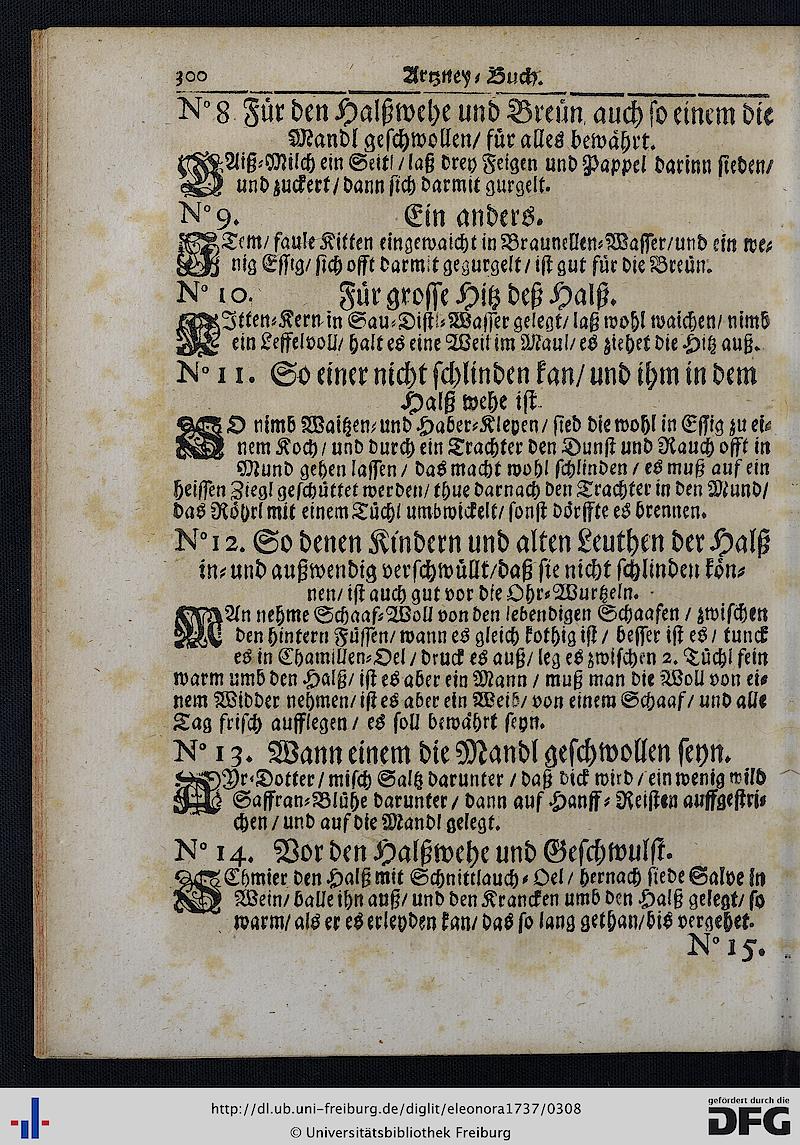 300 Artzney-Buch.
N° 8. Für den Halßwehe und Breün, auch so einem die
Mandl geschwollen/ für alles bewährt.
GAiß-Milch ein Seitl/ laß drey Feigen und Pappel darinn sieden/
und zuckert/ dann sich darmit gurgelt.
N° 9. Ein anders.
ITem/ faule Kitten eingewaicht in Braunellen-Wasser/ und ein we-
nig Essig/ sich offt darmit gegurgelt/ ist gut für die Breün.
N° 10. Für grosse Hitz deß Halß.
KItten-Kern in Sau-Distl-Wasser gelegt/ laß wohl waichen/ nimb
ein Leffelvoll/ halt es eine Weil im Maul/ es ziehet die Hitz auß.
N° 11. So einer nicht schlinden kan/ und ihm in dem
Halß wehe ist.
SO nimb Waitzen- und Haber-Kleyen/ sied die wohl in Essig zu ei-
nem Koch/ und durch ein Trachter den Dunst und Rauch offt in
Mund gehen lassen/ das macht wohl schlinden/ es muß auf ein
heissen Ziegl geschüttet werden/ thue darnach den Trachter in den Mund/
das Röhrl mit einem Tüchl umbwickelt/ sonst dörffte es brennen.
N° 12. So denen Kindern und alten Leuthen der Halß
in- und außwendig verschwüllt/ daß sie nicht schlinden kön-
nen/ ist auch gut vor die Ohr-Wurtzeln.
MAn nehme Schaaf-Woll von den lebendigen Schaafen/ zwischen
den hintern Füssen/ wann es gleich kothig ist/ besser ist es/ tunck
es in Chamillen-Oel/ druck es auß/ leg es zwischen 2. Tüchl fein
warm umb den Halß/ ist es aber ein Mann/ muß man die Woll von ei-
nem Widder nehmen/ ist es aber ein Weib/ von einem Schaaf/ und alle
Tag frisch aufflegen/ es soll bewährt seyn.
N° 13. Wann einem die Mandl geschwollen seyn.
AYr-Dotter/ misch Saltz darunter/ daß dick wird/ ein wenig wild
Saffran-Blühe darunter/ dann auf Hanff-Reisten auffgestri-
chen/ und auf die Mandl gelegt.
N° 14. Vor den Halßwehe und Geschwulst.
SChmier den Halß mit Schnittlauch-Oel/ hernach siede Salve in
Wein/ balle ihn auß/ und den Krancken umb den Halß gelegt/ so
warm/ als er es erleyden kan/ das so lang gethan/ bis vergehet.
N° 15.
http://dl.ub.uni-freiburg.de/diglit/eleonora1737/0308
© Universitätsbibliothek Freiburg
gefördert durch die
DFG